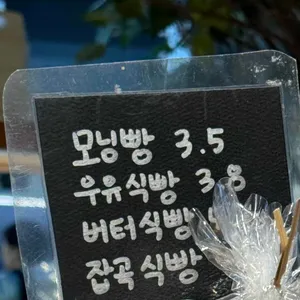 모닝빵 3.5
우유식빵 3.8
버터식빵
잡곡식빵